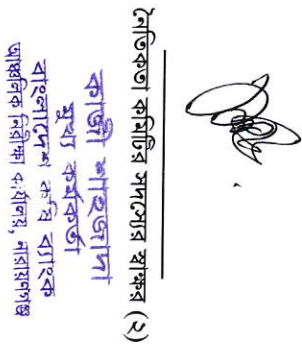 নৈতিকতা কমিটির সদস্যের স্বাক্ষর (২)
কাজী শাহজাদা
মুখ্য কর্মকর্তা
বাংলাদেশ কৃষি ব্যাংক
আঞ্চলিক নিরীক্ষা কার্যালয়, নারায়ণগঞ্জ